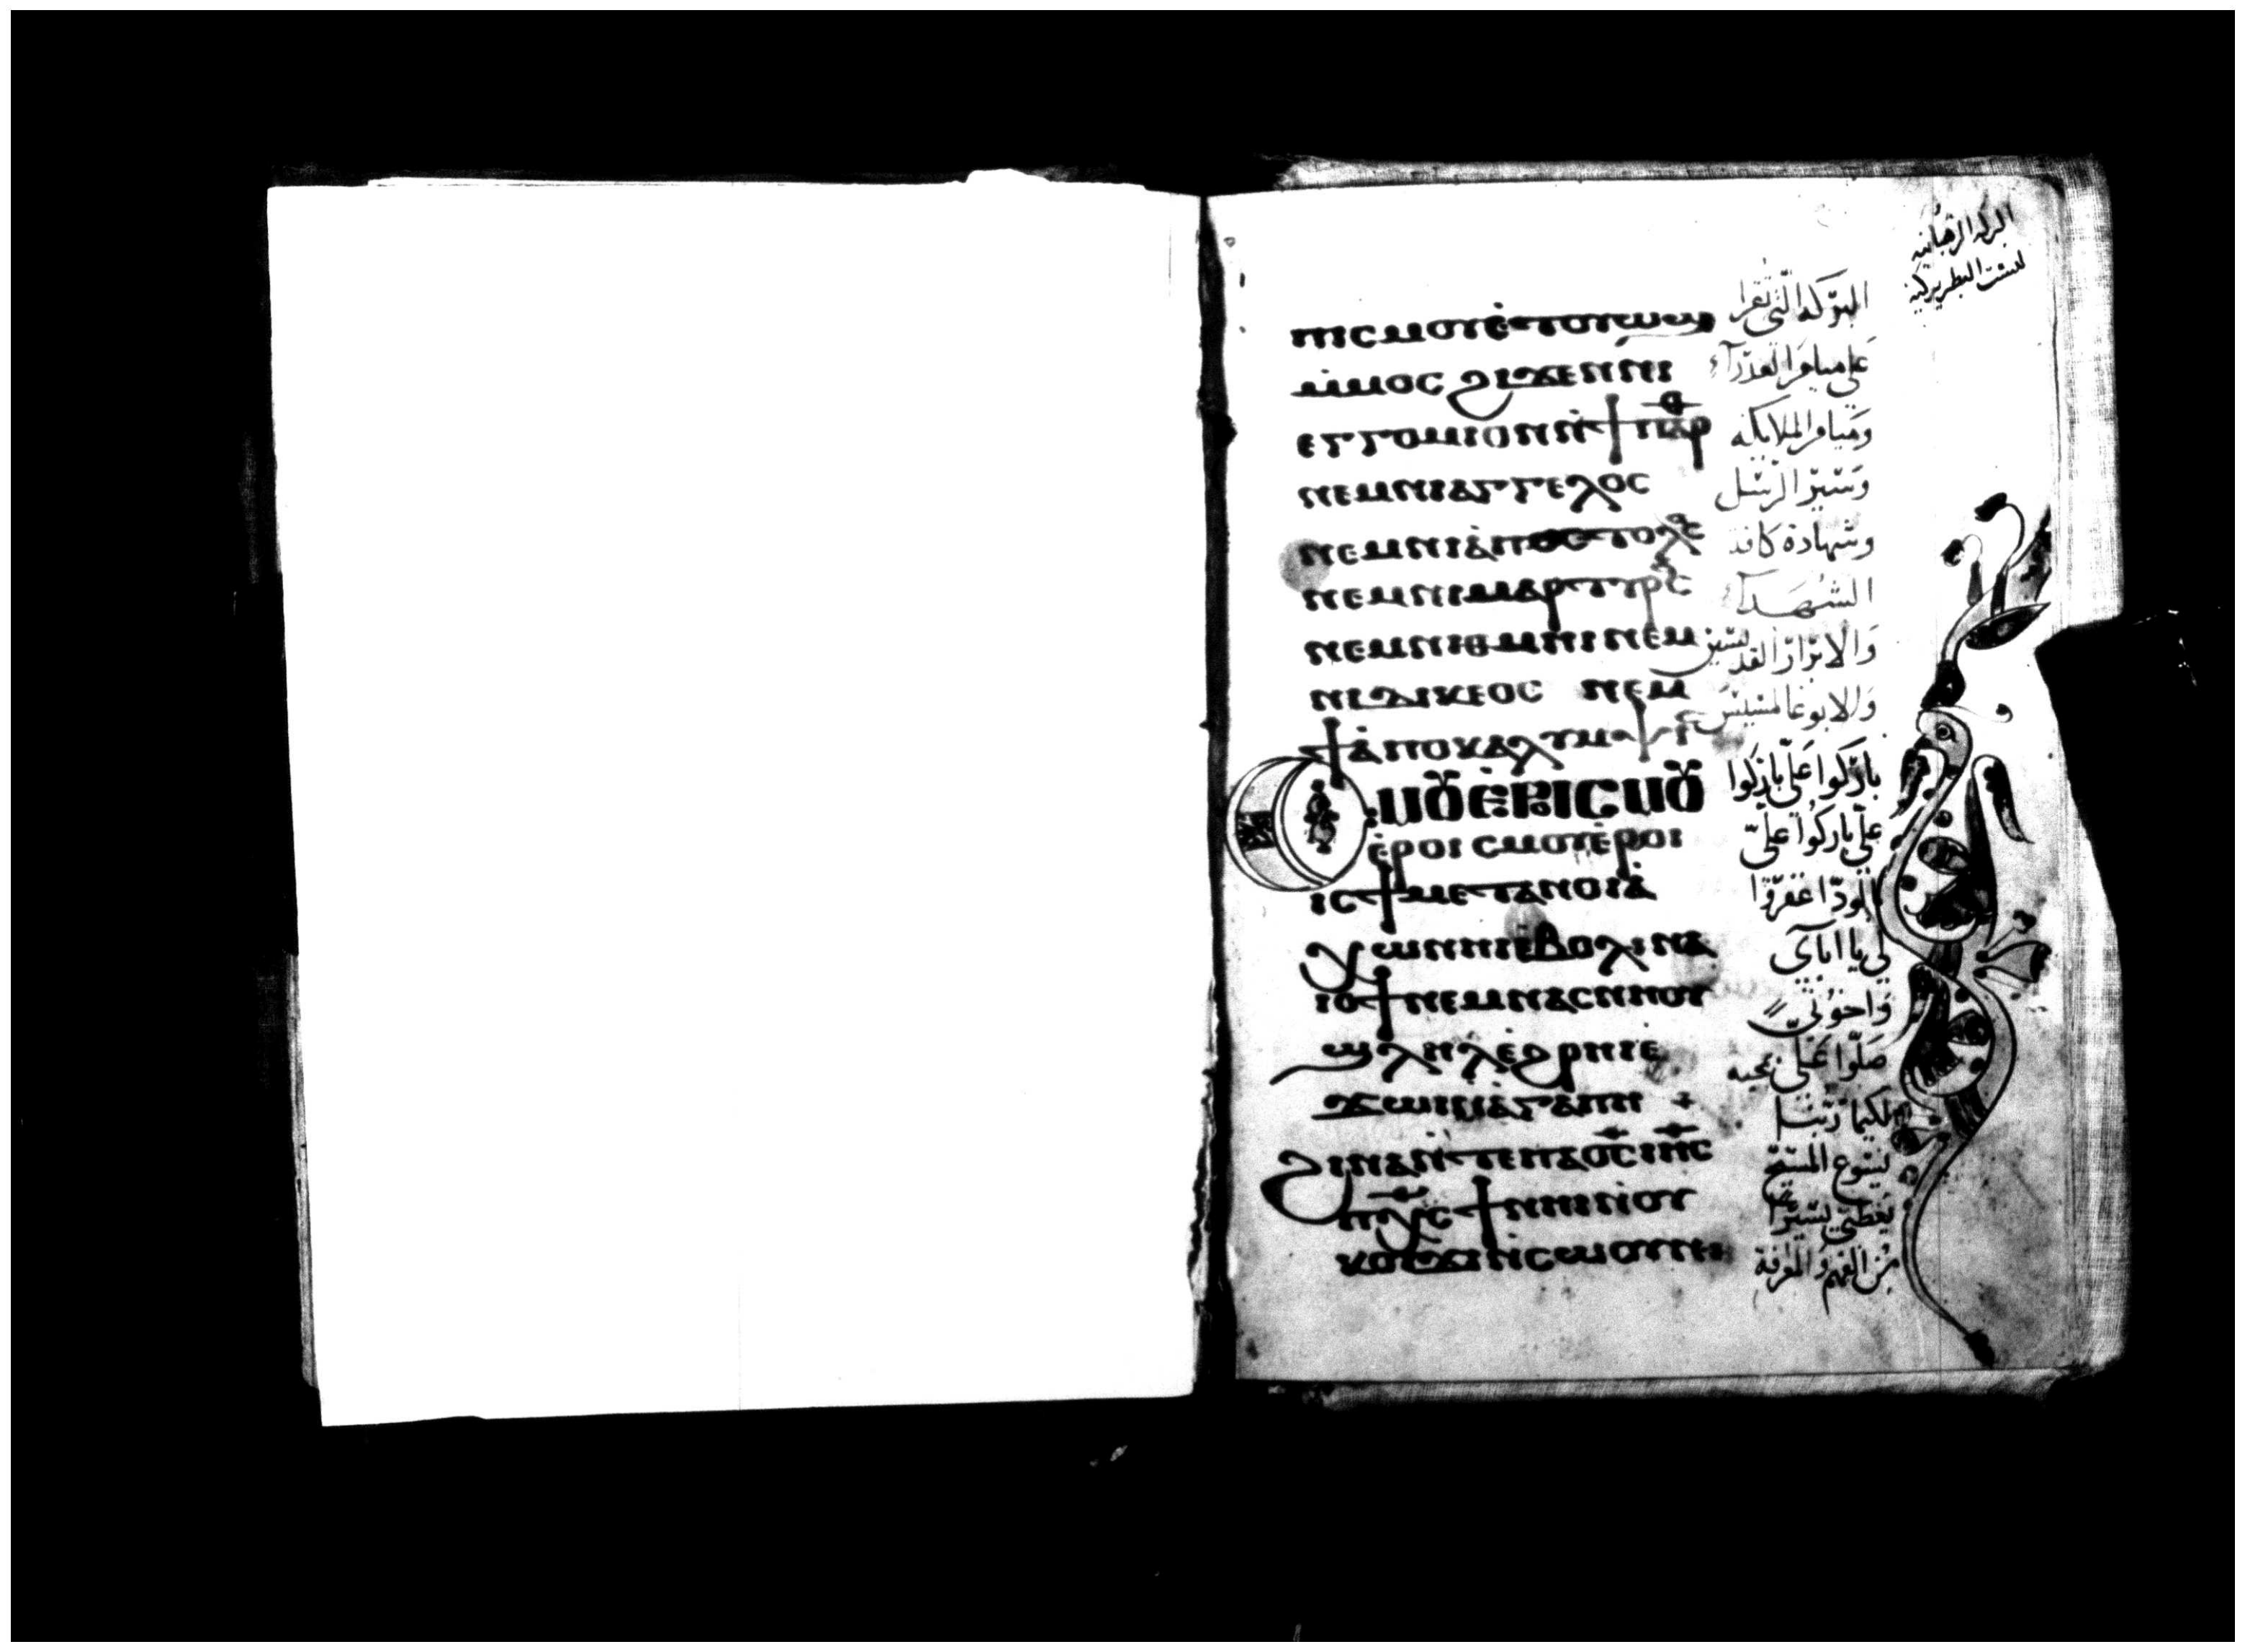 البركه الرهبانيه
ليست البطريركيه
ⲡⲓⲥⲙⲟⲩⲉ̀ⲧⲟⲩⲱϣ
ⲙ̀ⲙⲟϥ ϩⲓϫⲉⲛⲛⲓ
ⲉⲅⲅⲟⲙⲓⲟⲛⲛ̀ϯⲡⲁⲣ
ⲛⲉⲙⲛⲓⲁⲅⲅⲉⲗⲟⲥ
ⲛⲉⲙⲛⲓⲁ̀ⲡⲟⲥⲧⲟⲗⲟⲥ
ⲛⲉⲙⲛⲓⲙⲁⲣⲧⲩⲣⲟⲥ
ⲛⲉⲙⲛⲓⲑⲙⲏⲓ ⲛⲉⲙ
ⲛⲓⲇⲓⲕⲉⲟⲥ ⲛⲉⲙ
ϯⲁ̀ⲡⲟⲕⲁⲗⲩⲙⲯⲓⲥ
ⲥⲙⲟⲩⲉ̀ⲣⲟⲓⲥⲙⲟⲩ
ⲉ̀ⲣⲟⲓ ⲥⲙⲟⲩⲉ̀ⲣⲟⲓ
ⲓⲥϯⲙⲉⲧⲁⲛⲟⲓⲁ̀
ⲭⲱⲛⲏⲓⲉ̀ⲃⲟⲗⲓ ⲛⲁ
ⲓⲟϯⲛⲉⲙⲛⲁⲥⲛⲏⲟⲩ
ϣⲗⲏⲗⲉ̀ϩⲣⲏⲓⲉ̀
ϫⲱⲓⲛ̀ⲁ̀ⲅⲁⲡⲏ +
ϩⲓⲛⲁⲛ̀ⲧⲉⲡⲁⲟ̅ⲥ̅ⲓⲏ̅ⲥ̅
ⲡⲭ̅ⲥ̅ϯⲛⲏⲓⲛ̀ⲟⲩ
ⲕⲟⲩϫⲓⲛ̀ⲥⲱⲟⲩⲛ
البركه التي تقرا
على ميامر العدرآء
وميامر الملايكه
وسير الرسل
وشهادة كافة
الشهدآء
والابرار القديسين
والابوغالمسيس
باركوا عليّ باركوا
عليّ باركوا عليّ
اغفروا
لي يا اباي
واخوتي
صلوا عليّ بمحبه
لكيما ربنا
يسوع المسيح
يعطيني يسيرًا
من الفهم والمعرفة